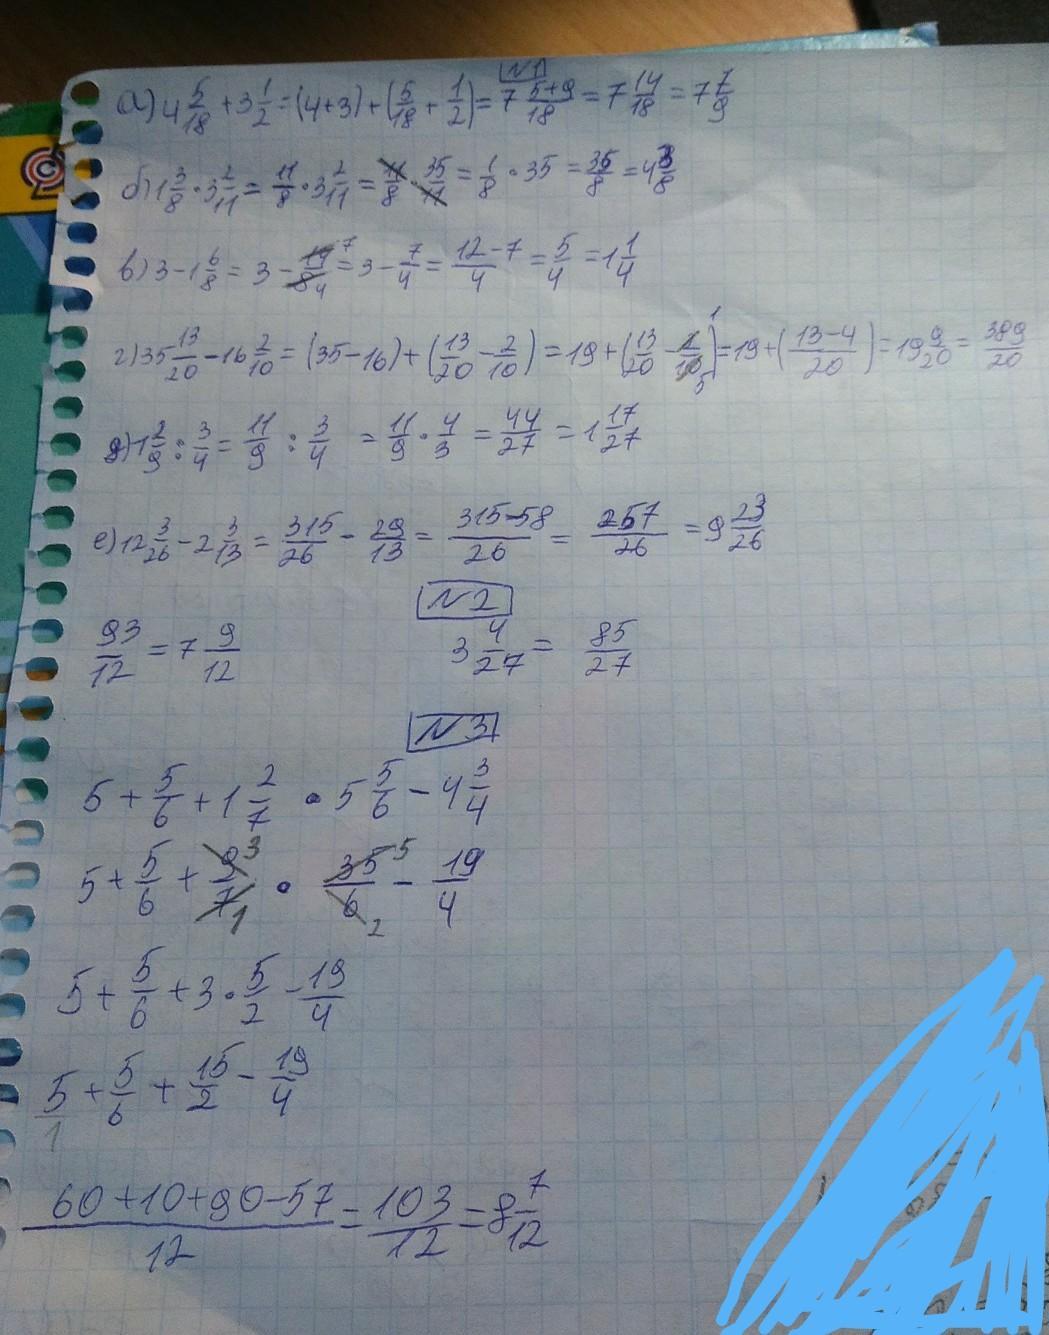 N1
а) 4 5/18 + 3 1/2 = (4+3) + (5/18 + 1/2) = 7 5+9/18 = 7 14/18 = 7 7/9
б) 1 3/8 · 3 2/11 = 11/8 · 3 2/11 = 11/8 · 35/11 = 1/8 · 35 = 35/8 = 4 3/8
в) 3 - 1 6/8 = 3 - 14/8 7 4 = 3 - 7/4 = 12-7/4 = 5/4 = 1 1/4
г) 35 13/20 - 16 2/10 = (35-16) + (13/20 - 2/10) = 19 + (13/20 - 2/10 1 5) = 19 + (13-4/20) = 19 9/20 = 389/20
д) 1 2/9 : 3/4 = 11/9 : 3/4 = 11/9 · 4/3 = 44/27 = 1 17/27
е) 12 3/26 - 2 3/13 = 315/26 - 29/13 = 315-58/26 = 257/26 = 9 23/26
N2
93/12 = 7 9/12 3 4/27 = 85/27
N3
5 + 5/6 + 1 2/7 · 5 5/6 - 4 3/4
5 + 5/6 + 9/7 3 1 · 35/6 5 2 - 19/4
5 + 5/6 + 3 · 5/2 - 19/4
5/1 + 5/6 + 15/2 - 19/4
60+10+90-57/12 = 103/12 = 8 7/12